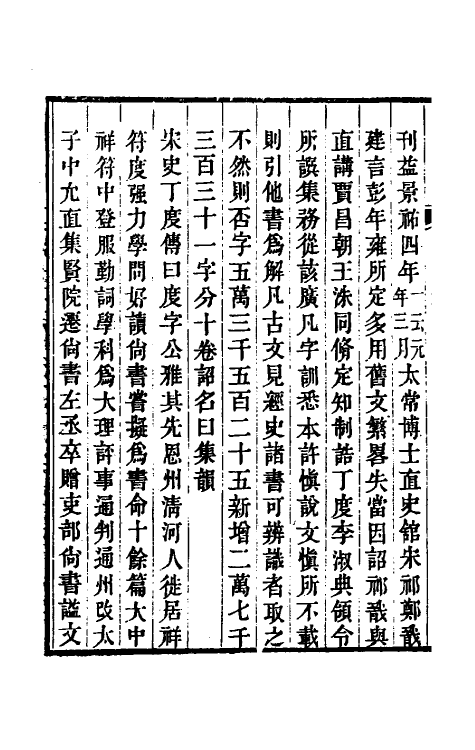 刊益景祐四年一云元年三月太常博士直史館宋祁鄭戩
建言彭年雍所定多用舊文繁畧失當因詔祁戩與
直講賈昌朝王洙同脩定知制誥丁度李淑典領令
所譔集務從該廣凡字訓悉本許愼說文愼所不載
則引他書爲解凡古文見經史諸書可辨識者取之
不然則否字五萬三千五百二十五新增二萬七千
三百三十一字分十卷詔名曰集韻
宋史丁度傳曰度字公雅其先恩州淸河人徙居祥
符度强力學問好讀尙書嘗擬爲書命十餘篇大中
祥符中登服勤詞學科爲大理評事通判通州改太
子中允直集賢院遷尙書左丞卒贈吏部尙書諡文